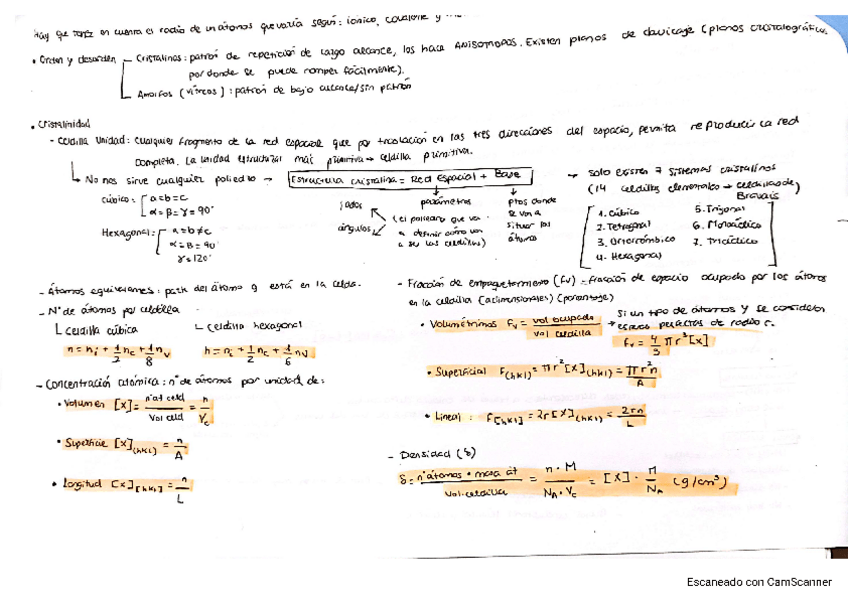 Hay que tener en cuenta el radio de un átomo que varía según: iónico, covalente y
• Orden y desorden
Cristalinos: patrón de repetición de largo alcance, los hace ANISOTROPOS. Existen planos de clavicaje (planos cristalográficos,
por donde se puede romper fácilmente).
Amorfos (vítreos): patrón de bajo alcance/sin patrón
• Cristalinidad
- Celdilla Unidad: cualquier fragmento de la red espacial que por traslación en las tres direcciones del espacio, permita reproducir la red
completa. La unidad estructural más primitiva → celdilla primitiva.
↳ No nos sirve cualquier poliedro → Estructura cristalina = Red Espacial + Base
cúbico: a=b=c
α=β=γ=90°
Hexagonal: a=b≠c
α=β=90°
γ=120°
lados
ángulos
parámetros
(el poliedro que va
a definir cómo van
a ser las celdillas)
ptos donde
se van a
situar los
átomos
→ solo existen 7 sistemas cristalinos
(14 celdillas elementales → celdillas de
Bravais)
1. Cúbico
2. Tetragonal
3. Ortorrómbico
4. Hexagonal
5. Trigonal
6. Monoclínico
7. Triclínico
- Átomos equivalentes: parte del átomo q está en la celda.
- Nº de átomos por celdilla
Celdilla cúbica
n = ni + 1/2 nc + 1/8 nv
Celdilla hexagonal
n = ni + 1/2 nc + 1/6 nv
- Concentración atómica: nº de átomos por unidad de:
• Volumen [X] = nº at celd / Vol celd = n / Vc
• Superficie [X](hkl) = n / A
• Longitud [X][hkl] = n / L
- Fracción de empaquetamiento (fv) = fracción de espacio ocupado por los átomos
en la celdilla (adimensionales) (porcentaje)
• Volumétrica: fv = vol ocupado / vol celdilla
Si un tipo de átomos y se consideran
esferas perfectas de radio r.
fv = 4/3 π r³ [X]
• Superficial f(hkl) = πr² [X](hkl) = πr²n / A
• Lineal: f[hkl] = 2r [X](hkl) = 2rn / L
- Densidad (δ)
δ = nº átomos · masa át / vol. celdilla = n · M / NA · Vc = [X] · M / NA (g/cm³)
Escaneado con CamScanner